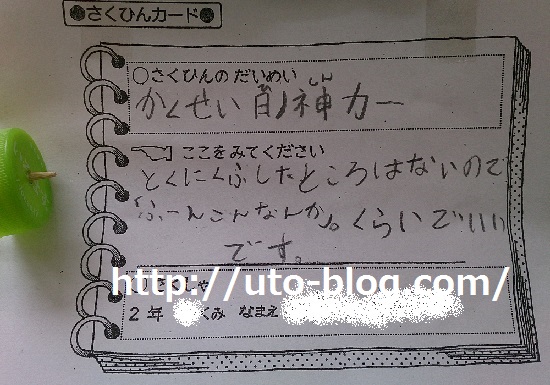 ●さくひんカード●
○さくひんの だいめい
しん
かくせい 神カー
ここをみてください
とくにくふしたところはないので
ふーんこんなんか。くらいでいい
です。
http://uto-blog.com/
2年 くみ なまえ